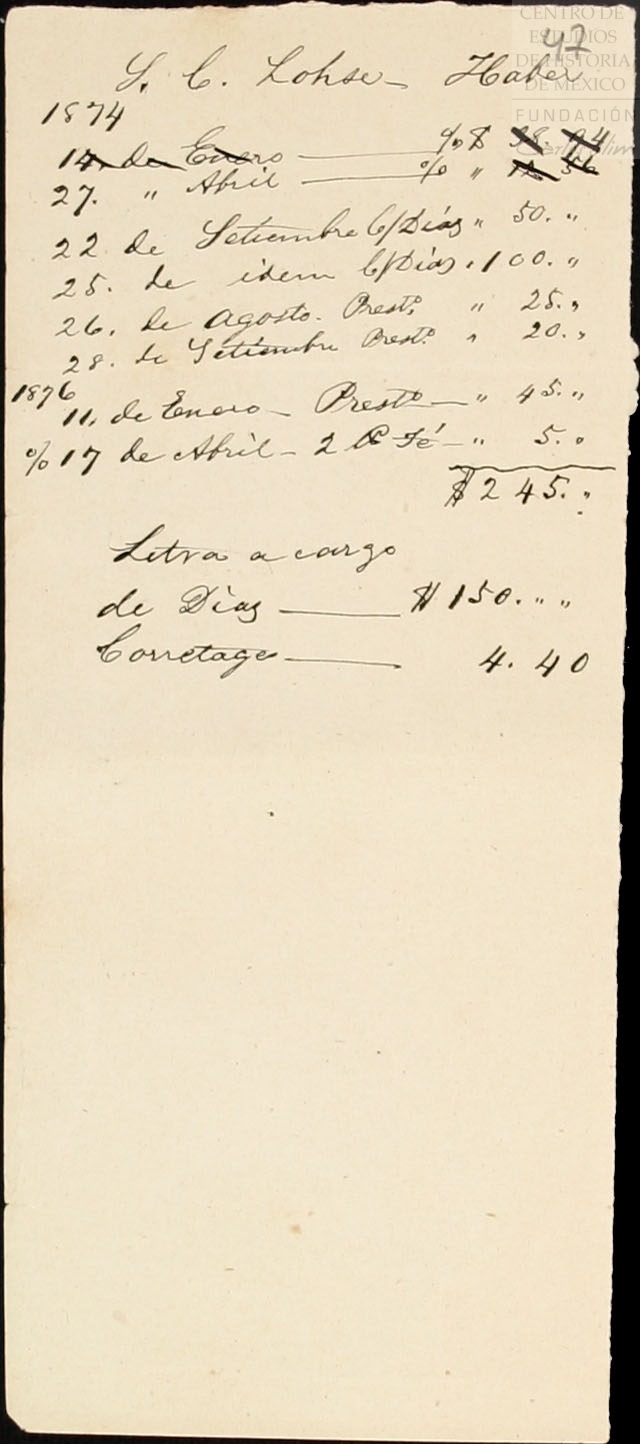 CENTRO DE
ESTUDIOS
DE HISTORIA
DE MÉXICO
FUNDACIÓN
47
S. C. Lohse - Haber
1874
14. de Enero % $ 38. 94
27. " Abril % " 56
22 de Setiembre C/Diáz " 50. "
25. de idem C/Diáz " 100. "
26. de agosto. Presto " 25. "
28. de Setiembre Presto " 20. "
1876
11. de Enero - Presto - " 45. "
% 17 de Abril - 2 Fé - " 5. "
$ 245. "
Letra a cargo
de Diáz $ 150. " "
Corretage 4. 40